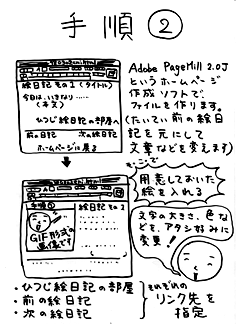 手順②
絵日記その1(タイトル)
今日は、いきなり……
(本文)
ひつじ絵日記の部屋へ
前の日記 次の絵日記
ホームページに戻る
Adobe PageMill 2.0J
というホームページ
作成ソフトで、
ファイルを作ります。
(たいてい前の絵日
記を元にして
文章などを変えます)
そこで
用意しておいた
絵を入れる
手順①
絵日記その2
GIF形式の
画像です
文字の大きさ、色な
どを、アタシ好みに
変更!
・ひつじ絵日記の部屋
・前の絵日記
・次の絵日記
それぞれの
リンク先を
指定